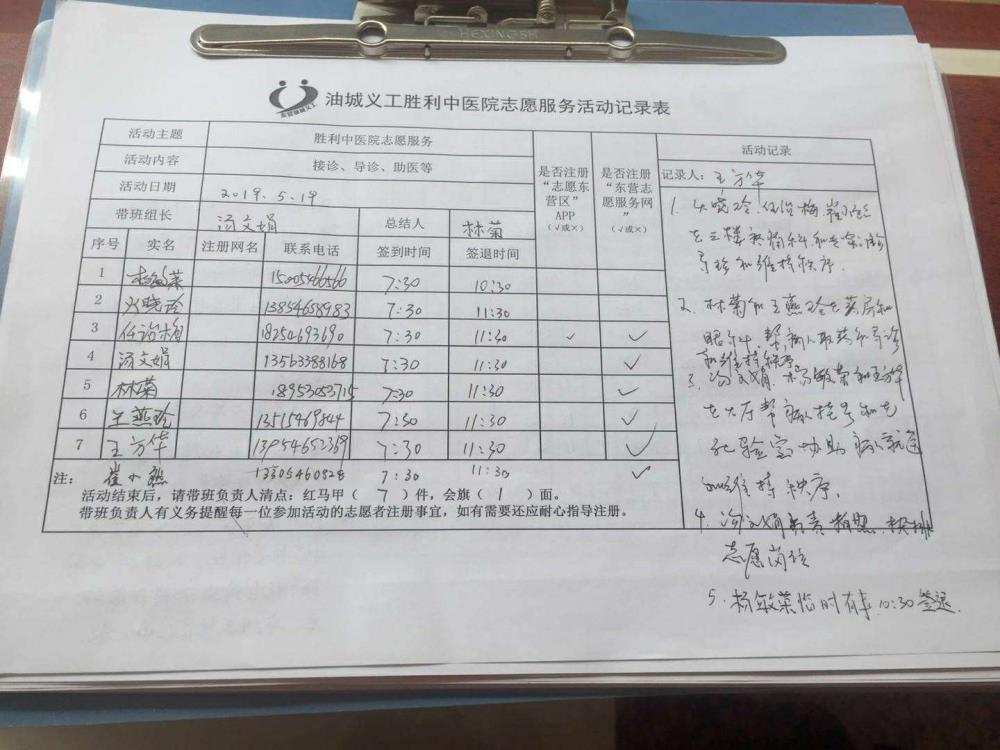 HEXINGSH
东营油城义工
油城义工胜利中医院志愿服务活动记录表
活动主题 胜利中医院志愿服务
活动内容 接诊、导诊、助医等
活动日期 2019.5.19
带班组长 汤文娟 总结人 林菊
是否注册“志愿东营区”APP（√或×）
是否注册“东营志愿服务网”（√或×）
序号 实名 注册网名 联系电话 签到时间 签退时间
1 杨敏荣 15005466566 7:30 10:30
2 火晓玲 13854658983 7:30 11:30
3 任治梅 18254693690 7:30 11:30 ✓ ✓
4 汤文娟 13563388168 7:30 11:30 ✓
5 林菊 18953053715 7:30 11:30 ✓
6 王燕玲 13515469844 7:30 11:30 ✓
7 王方华 13954652389 7:30 11:30 ✓
崔小燕 13305460828 7:30 11:30 ✓
注：
活动结束后，请带班负责人清点：红马甲（ 7 ）件，会旗（ 1 ）面。
带班负责人有义务提醒每一位参加活动的志愿者注册事宜，如有需要还应耐心指导注册。
活动记录
记录人：王方华
1. 火晓玲.任治梅.崔小燕
在三楼
导诊和维持秩序.
2. 林菊和王燕玲在药房和
眼科.帮病人取药和导诊
和维持秩序
3. 汤文娟.杨敏荣和王方华
在大厅帮病人挂号和在
化验室协助病人就近
和维持秩序.
4. 汤文娟负责拍照.安排
志愿岗位
5. 杨敏荣临时有事10:30签退.